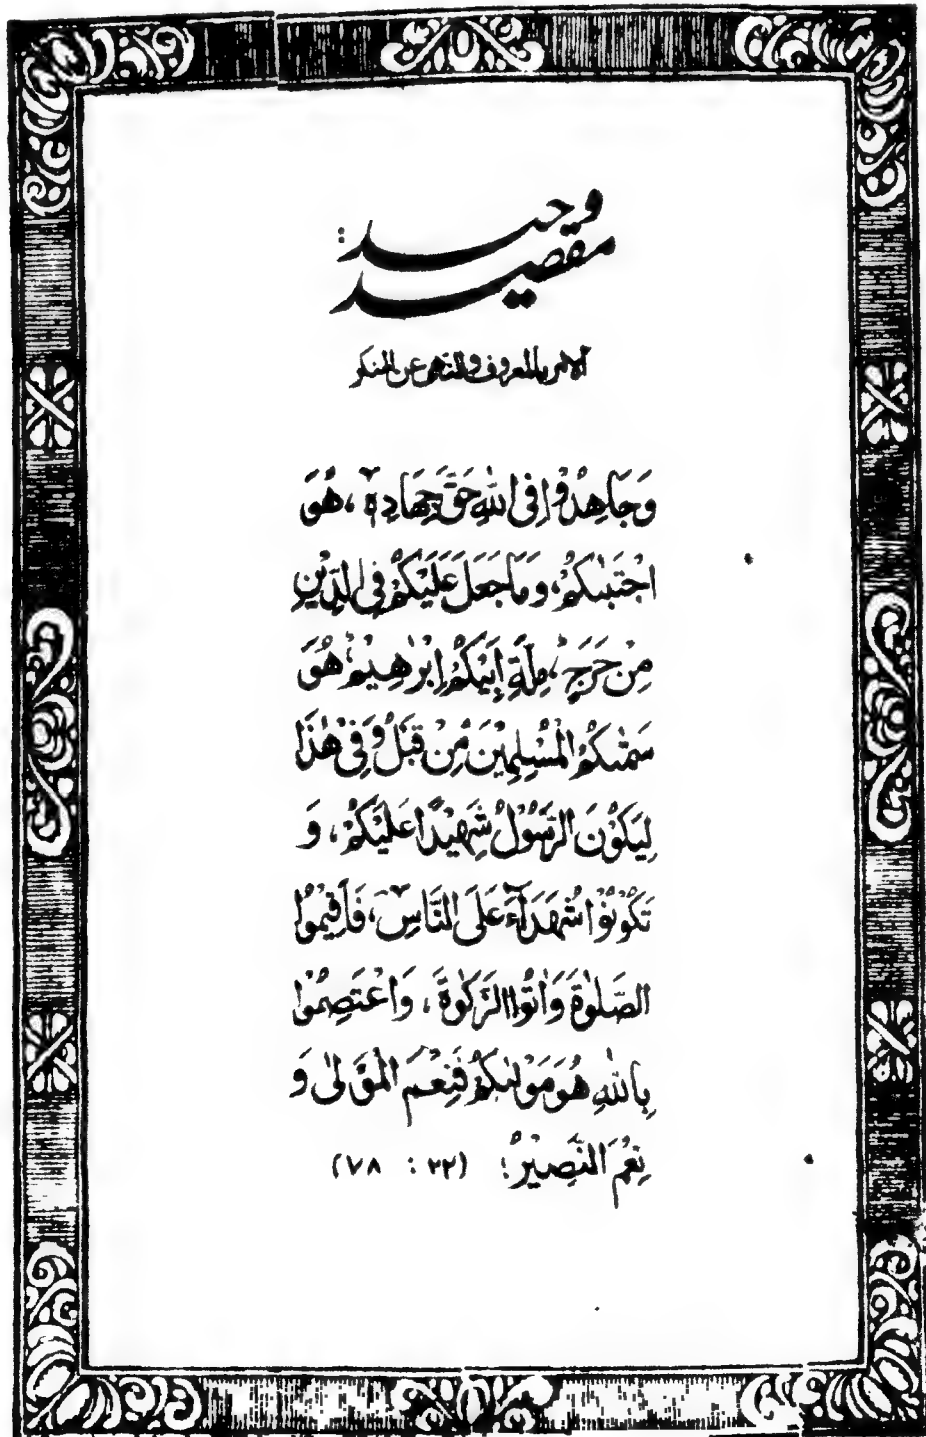 وحید مقصد:
الامر بالمعروف والنهى عن المنكر
وَجَاهِدُوْا فِى اللّٰهِ حَقَّ جِهَادِهٖ ، هُوَ
اجْتَبٰىكُمْ ، وَمَا جَعَلَ عَلَيْكُمْ فِى الدِّيْنِ
مِنْ حَرَجٍ ، مِلَّةَ اَبِيْكُمْ اِبْرٰهِيْمَ ، هُوَ
سَمّٰىكُمُ الْمُسْلِمِيْنَ مِنْ قَبْلُ وَفِىْ هٰذَا
لِيَكُوْنَ الرَّسُوْلُ شَهِيْدًا عَلَيْكُمْ ، وَ
تَكُوْنُوْا شُهَدَآءَ عَلَى النَّاسِ ، فَاَقِيْمُوا
الصَّلٰوةَ وَاٰتُوا الزَّكٰوةَ ، وَاعْتَصِمُوْا
بِاللّٰهِ هُوَ مَوْلٰىكُمْ فَنِعْمَ الْمَوْلٰى وَ
نِعْمَ النَّصِيْرُ ؛ (۲۲ : ۷۸)